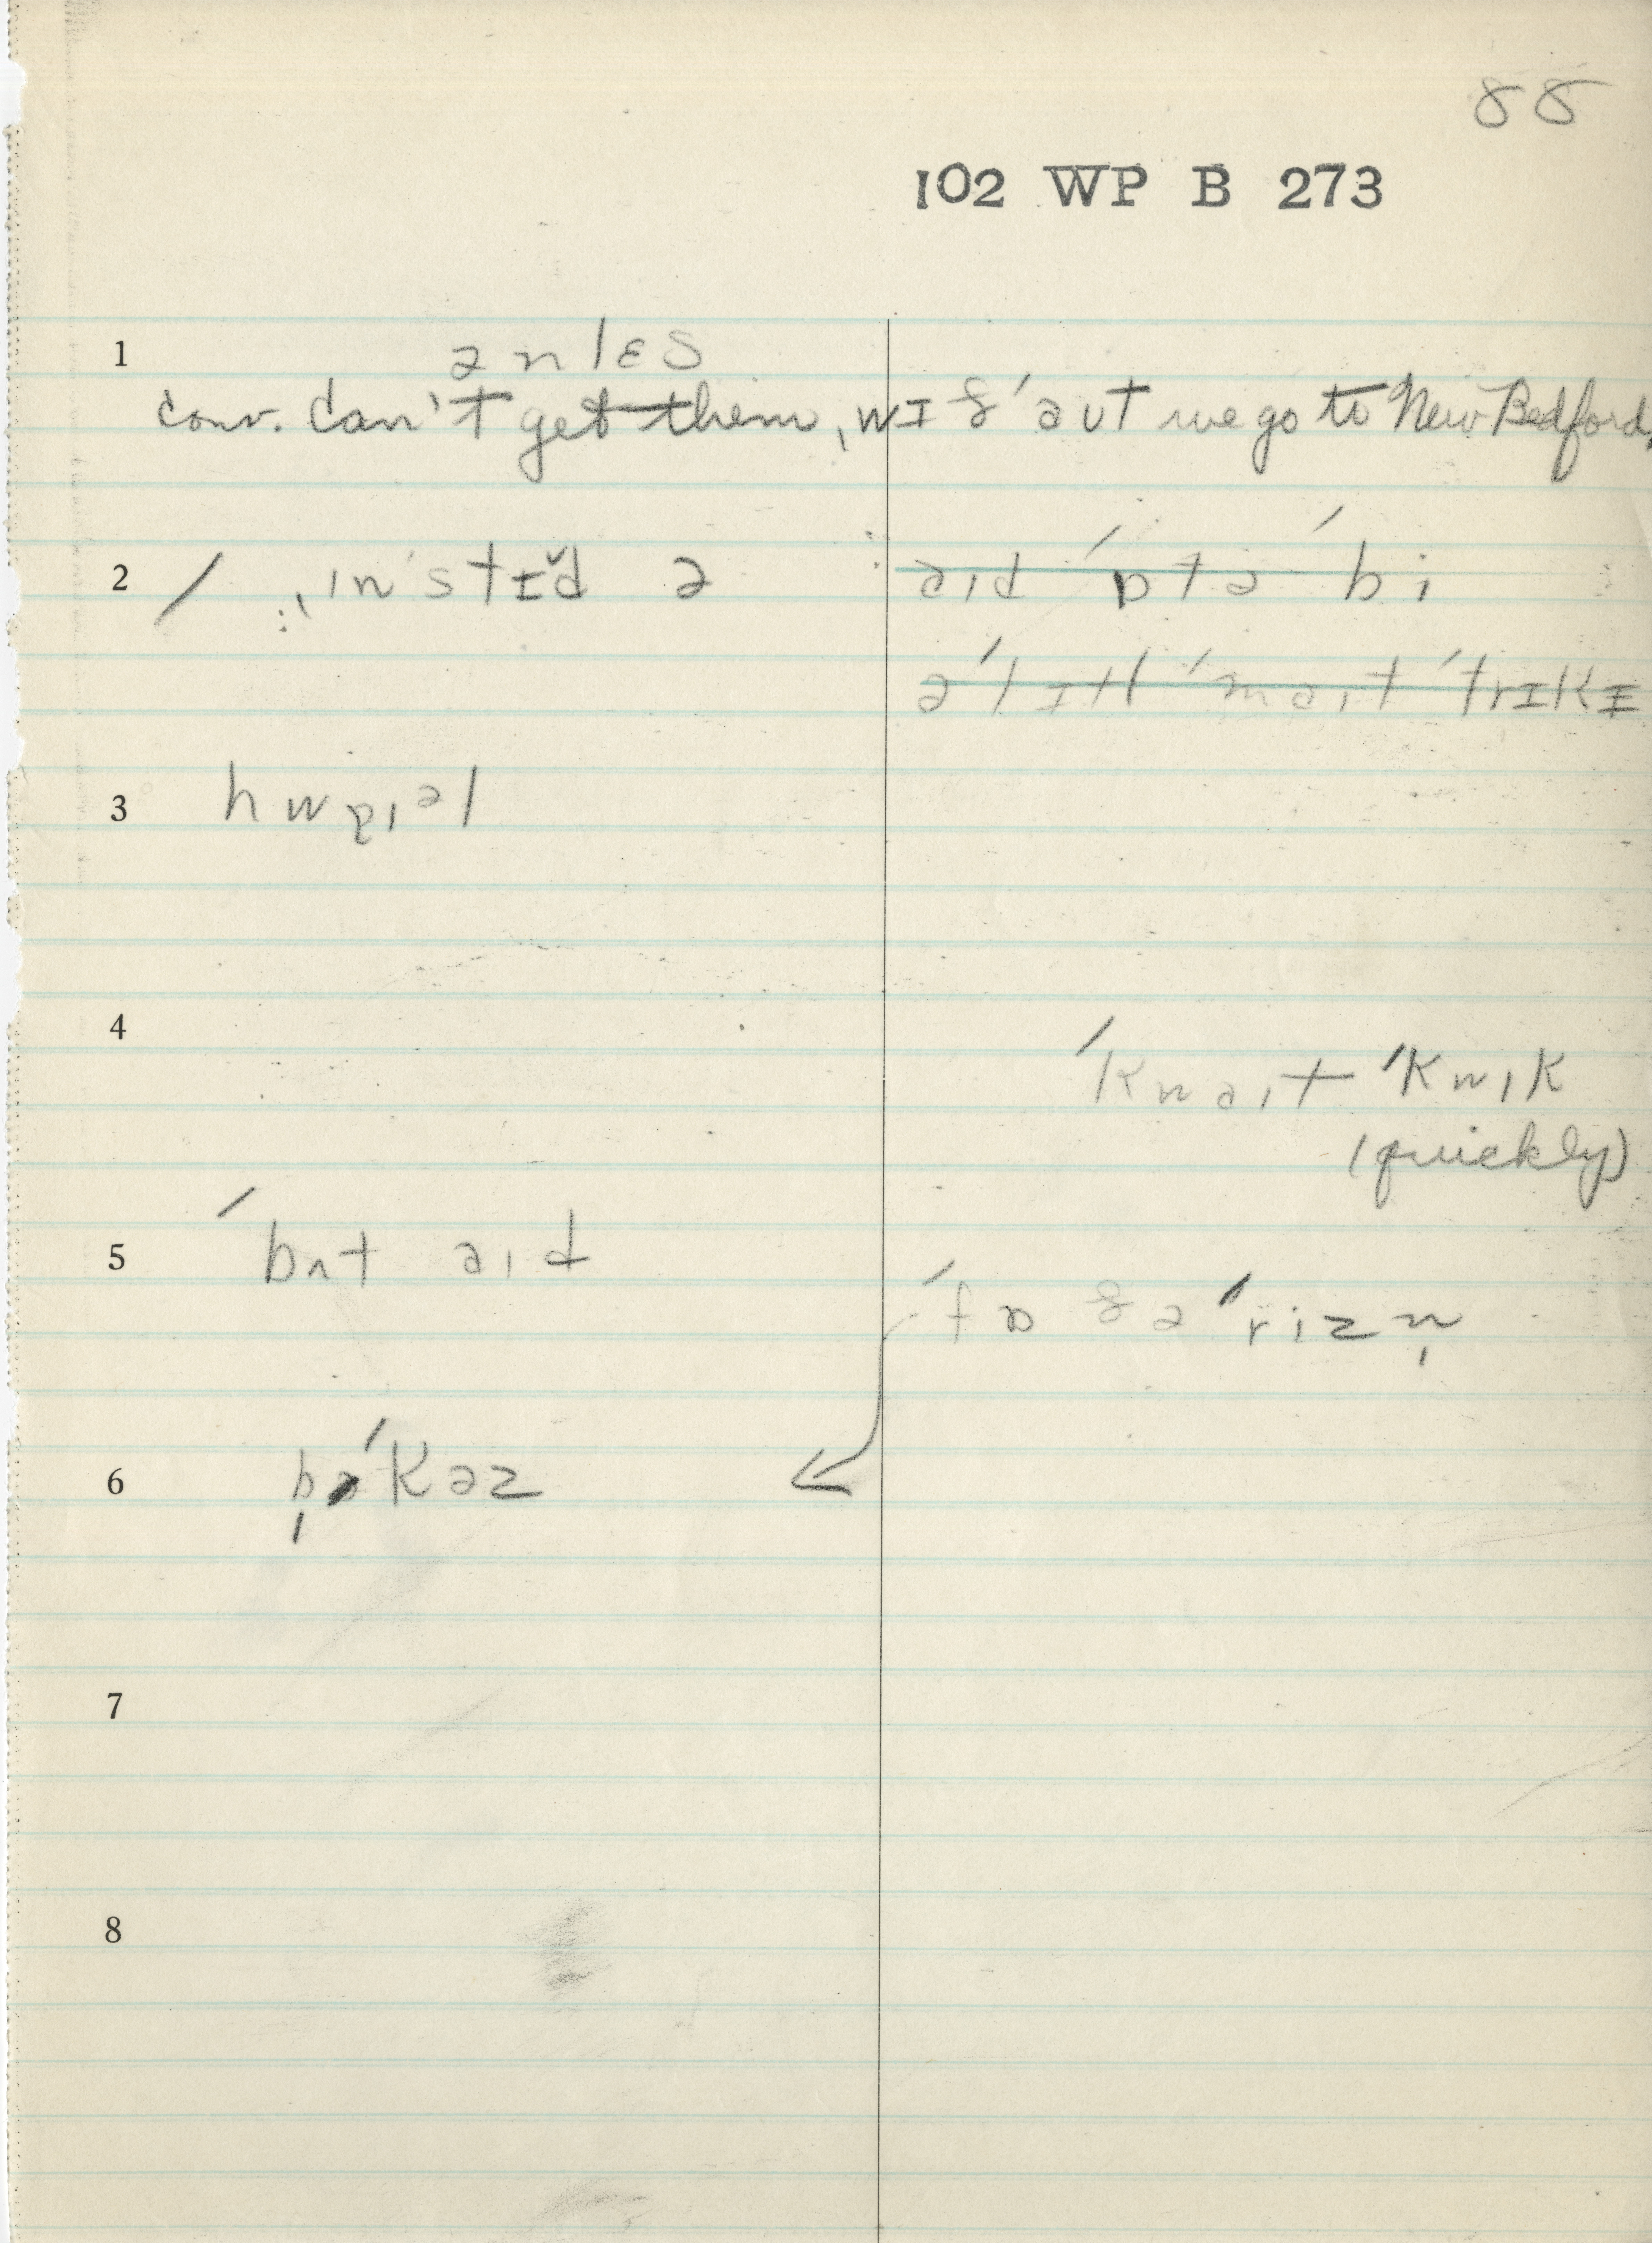 88
102 WP B 273
1 ənlɛs
conv. Can't get them, wɪð'əut we go to New Bedford,
2 / ɪn'stɪ̆d ə
əɪd 'ɒtə 'bi
ə 'lɪtl 'məɪt 'trɪkɪ
3 hwɒɪəl
4 'kwəɪt 'kwɪk
(quickly)
5 'bʌt əɪd
'fɒ ðə 'rizn̩
6 'kəz
7
8